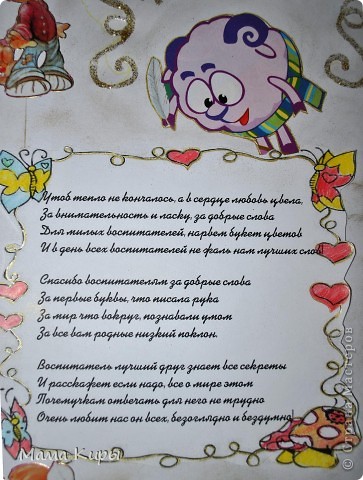 Чтоб тепло не кончалось, а в сердце любовь цвела,
За внимательность и ласку, за добрые слова
Для милых воспитателей, нарвем букет цветов
И в день всех воспитателей не фаль нам лучших слов!

Спасибо воспитателям за добрые слова
За первые буквы, что писала рука
За мир что вокруг, познавали умом
За все вам родные низкий поклон.

Воспитатель лучший друг знает все секреты
И расскажет если надо, все о мире этом
Почемучкам отвечать для него не трудно
Очень любит нас он всех, безоглядно и бездумно
Мама Киры
© Страна Мастеров